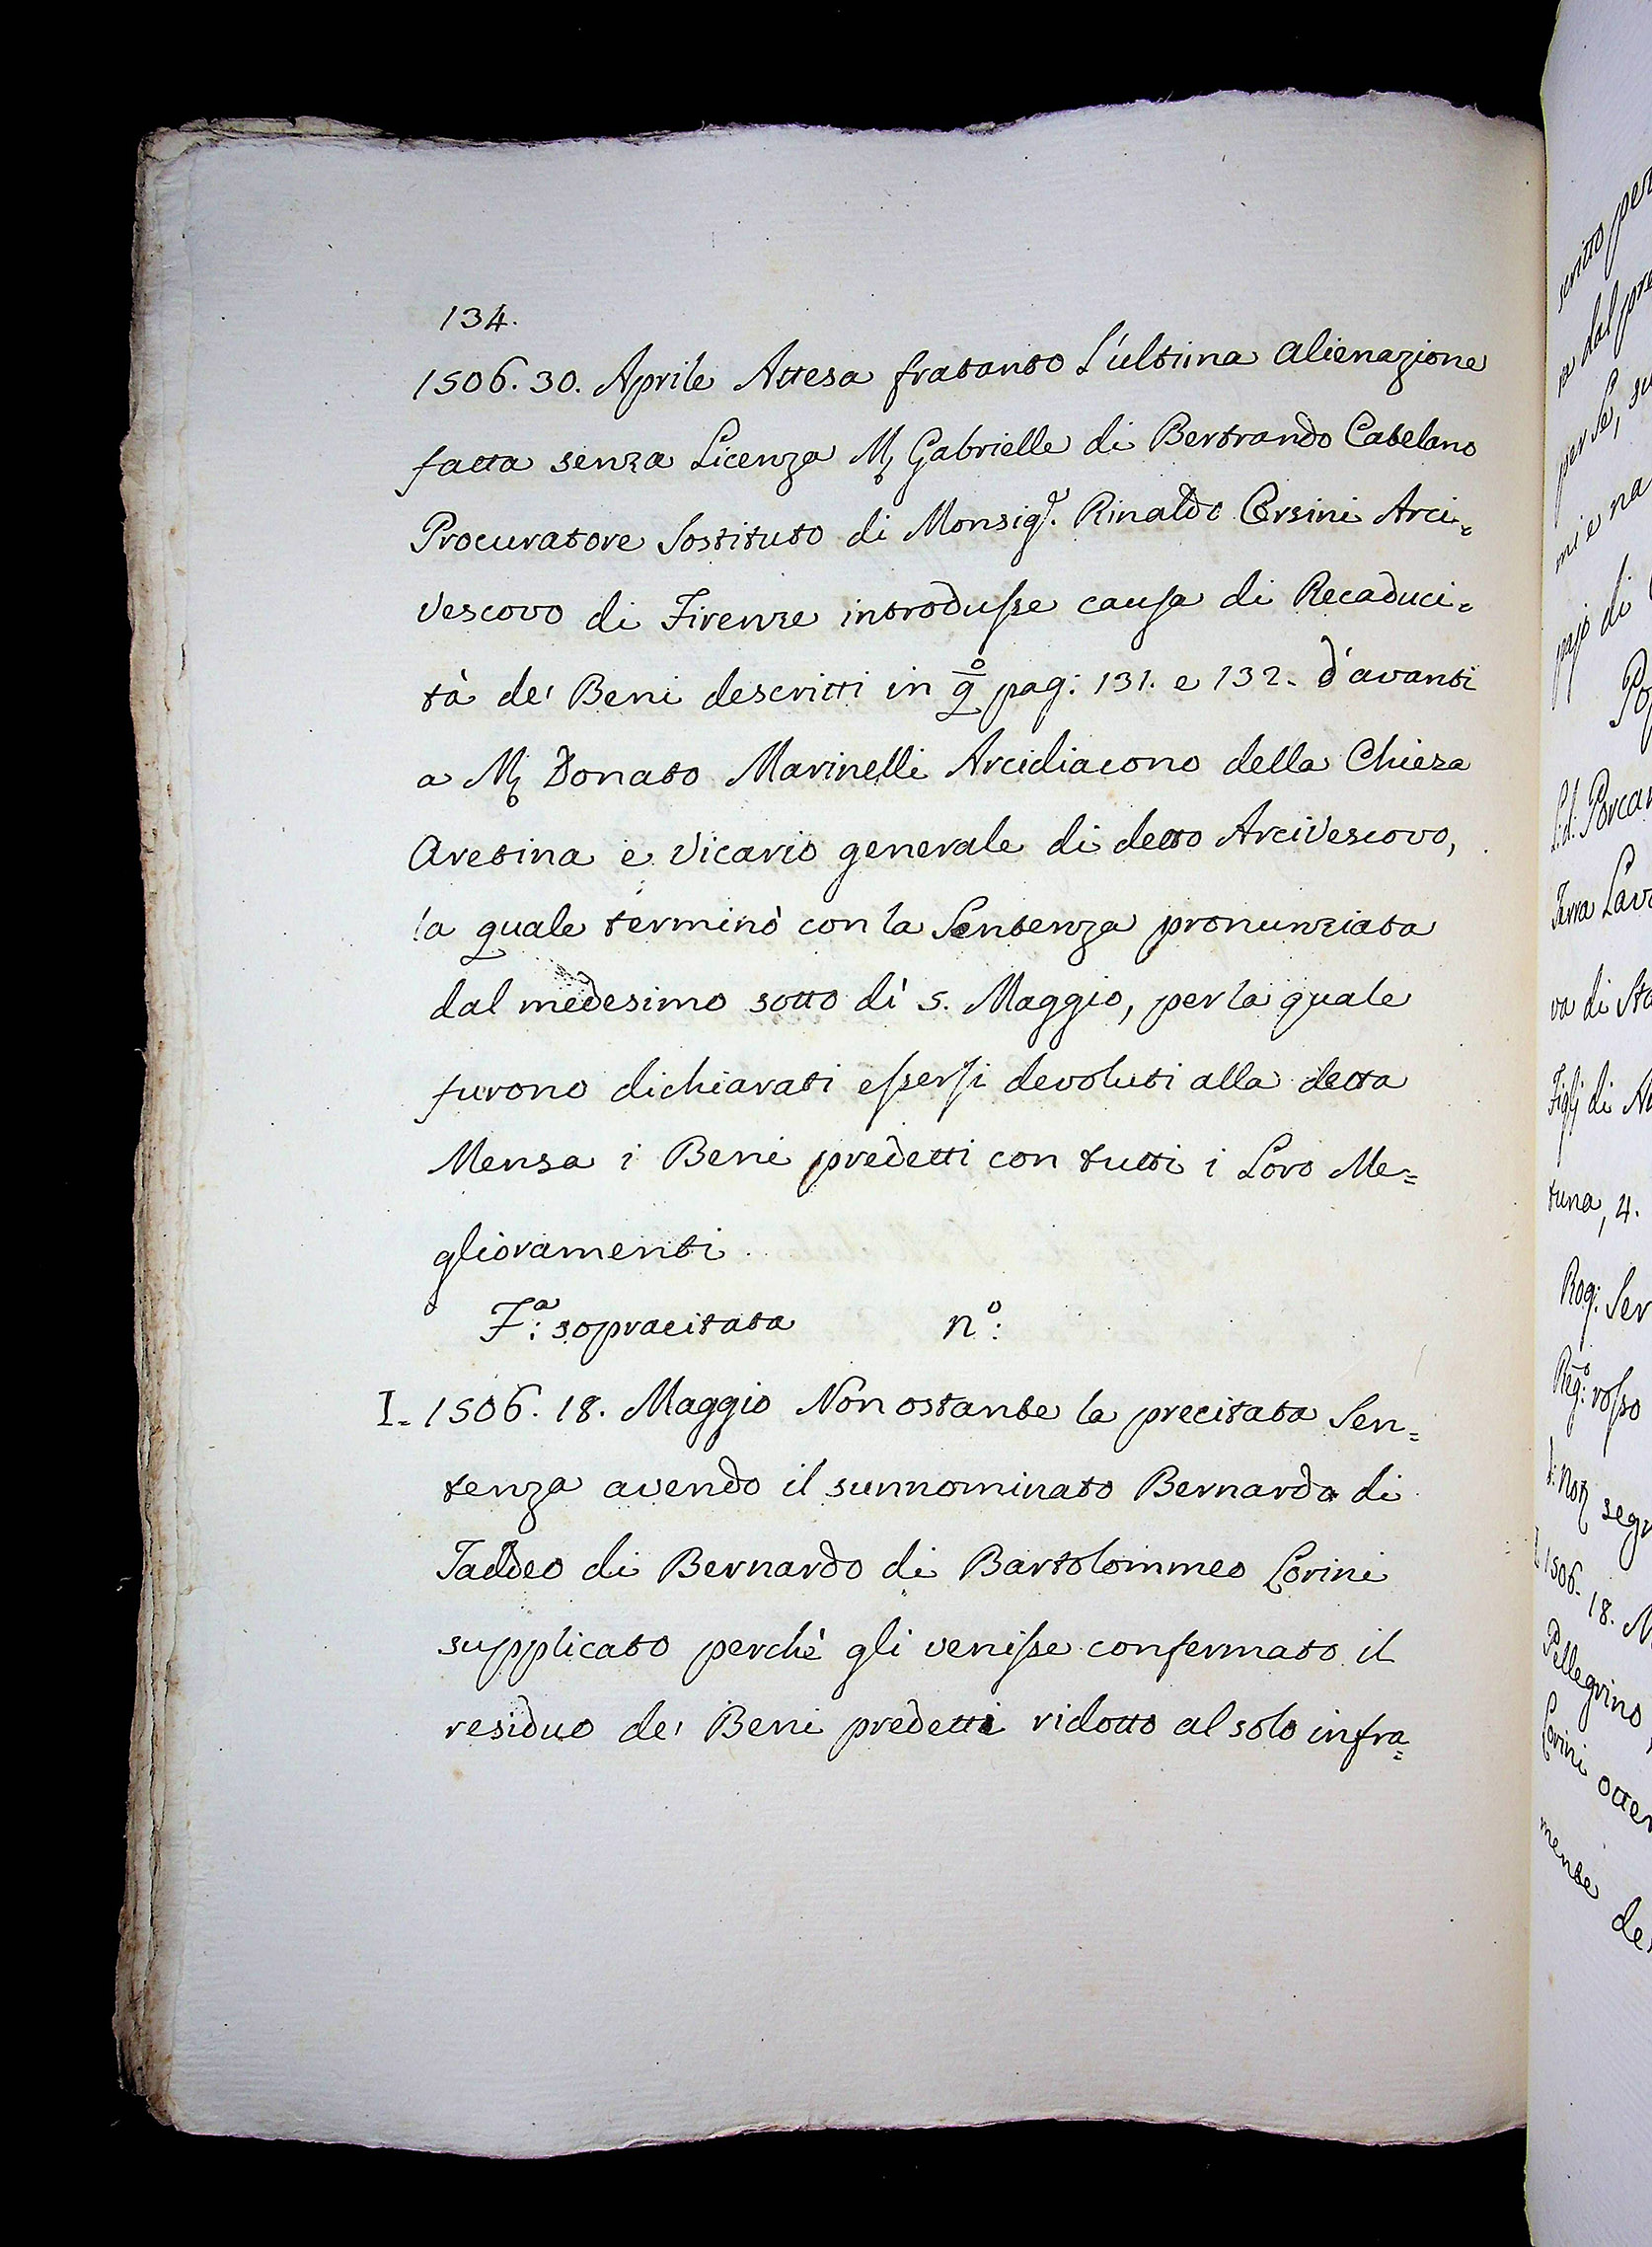 134.
1506. 30. Aprile Attesa fratanto L'ultima alienazione
fatta senza Licenza M. Gabrielle di Bertrando Catelano
Procuratore Sostituto di Monsig.r Rinaldo Orsini Arci=
vescovo di Firenze introdusse causa di Recaduci=
tà de' Beni descritti in qo pag: 131. e 132. d'avanti
a M. Donato Marinelli Arcidiacono della Chieza
Aretina e Vicario generale di detto ArciVescovo,
la quale terminò con la Sentenza pronunziata
dal medesimo sotto dì 5. Maggio, per la quale
furono dichiarati essersi devoluti alla detta
Mensa i Beni predetti con tutti i Loro Me=
glioramenti
F.a: sopracitata n.o:
I. 1506. 18. Maggio Non ostante la precitata Sen=
tenza avendo il sunnominato Bernardo di
Taddeo di Bernardo di Bartolommeo Lorini
supplicato perchè gli venisse confermato il
residuo de' Beni predetti ridotto al solo infra=
scritto per
per Se, su
mi e na
pajo di
Po
S:d: Porcar
Terra Lavo
va di Sta
Figlj di N
tuna, 4.
Rog: Ser
Reg.o: rosso
segu
1506. 18. M
Pellegrino
Lorini otten
mente de